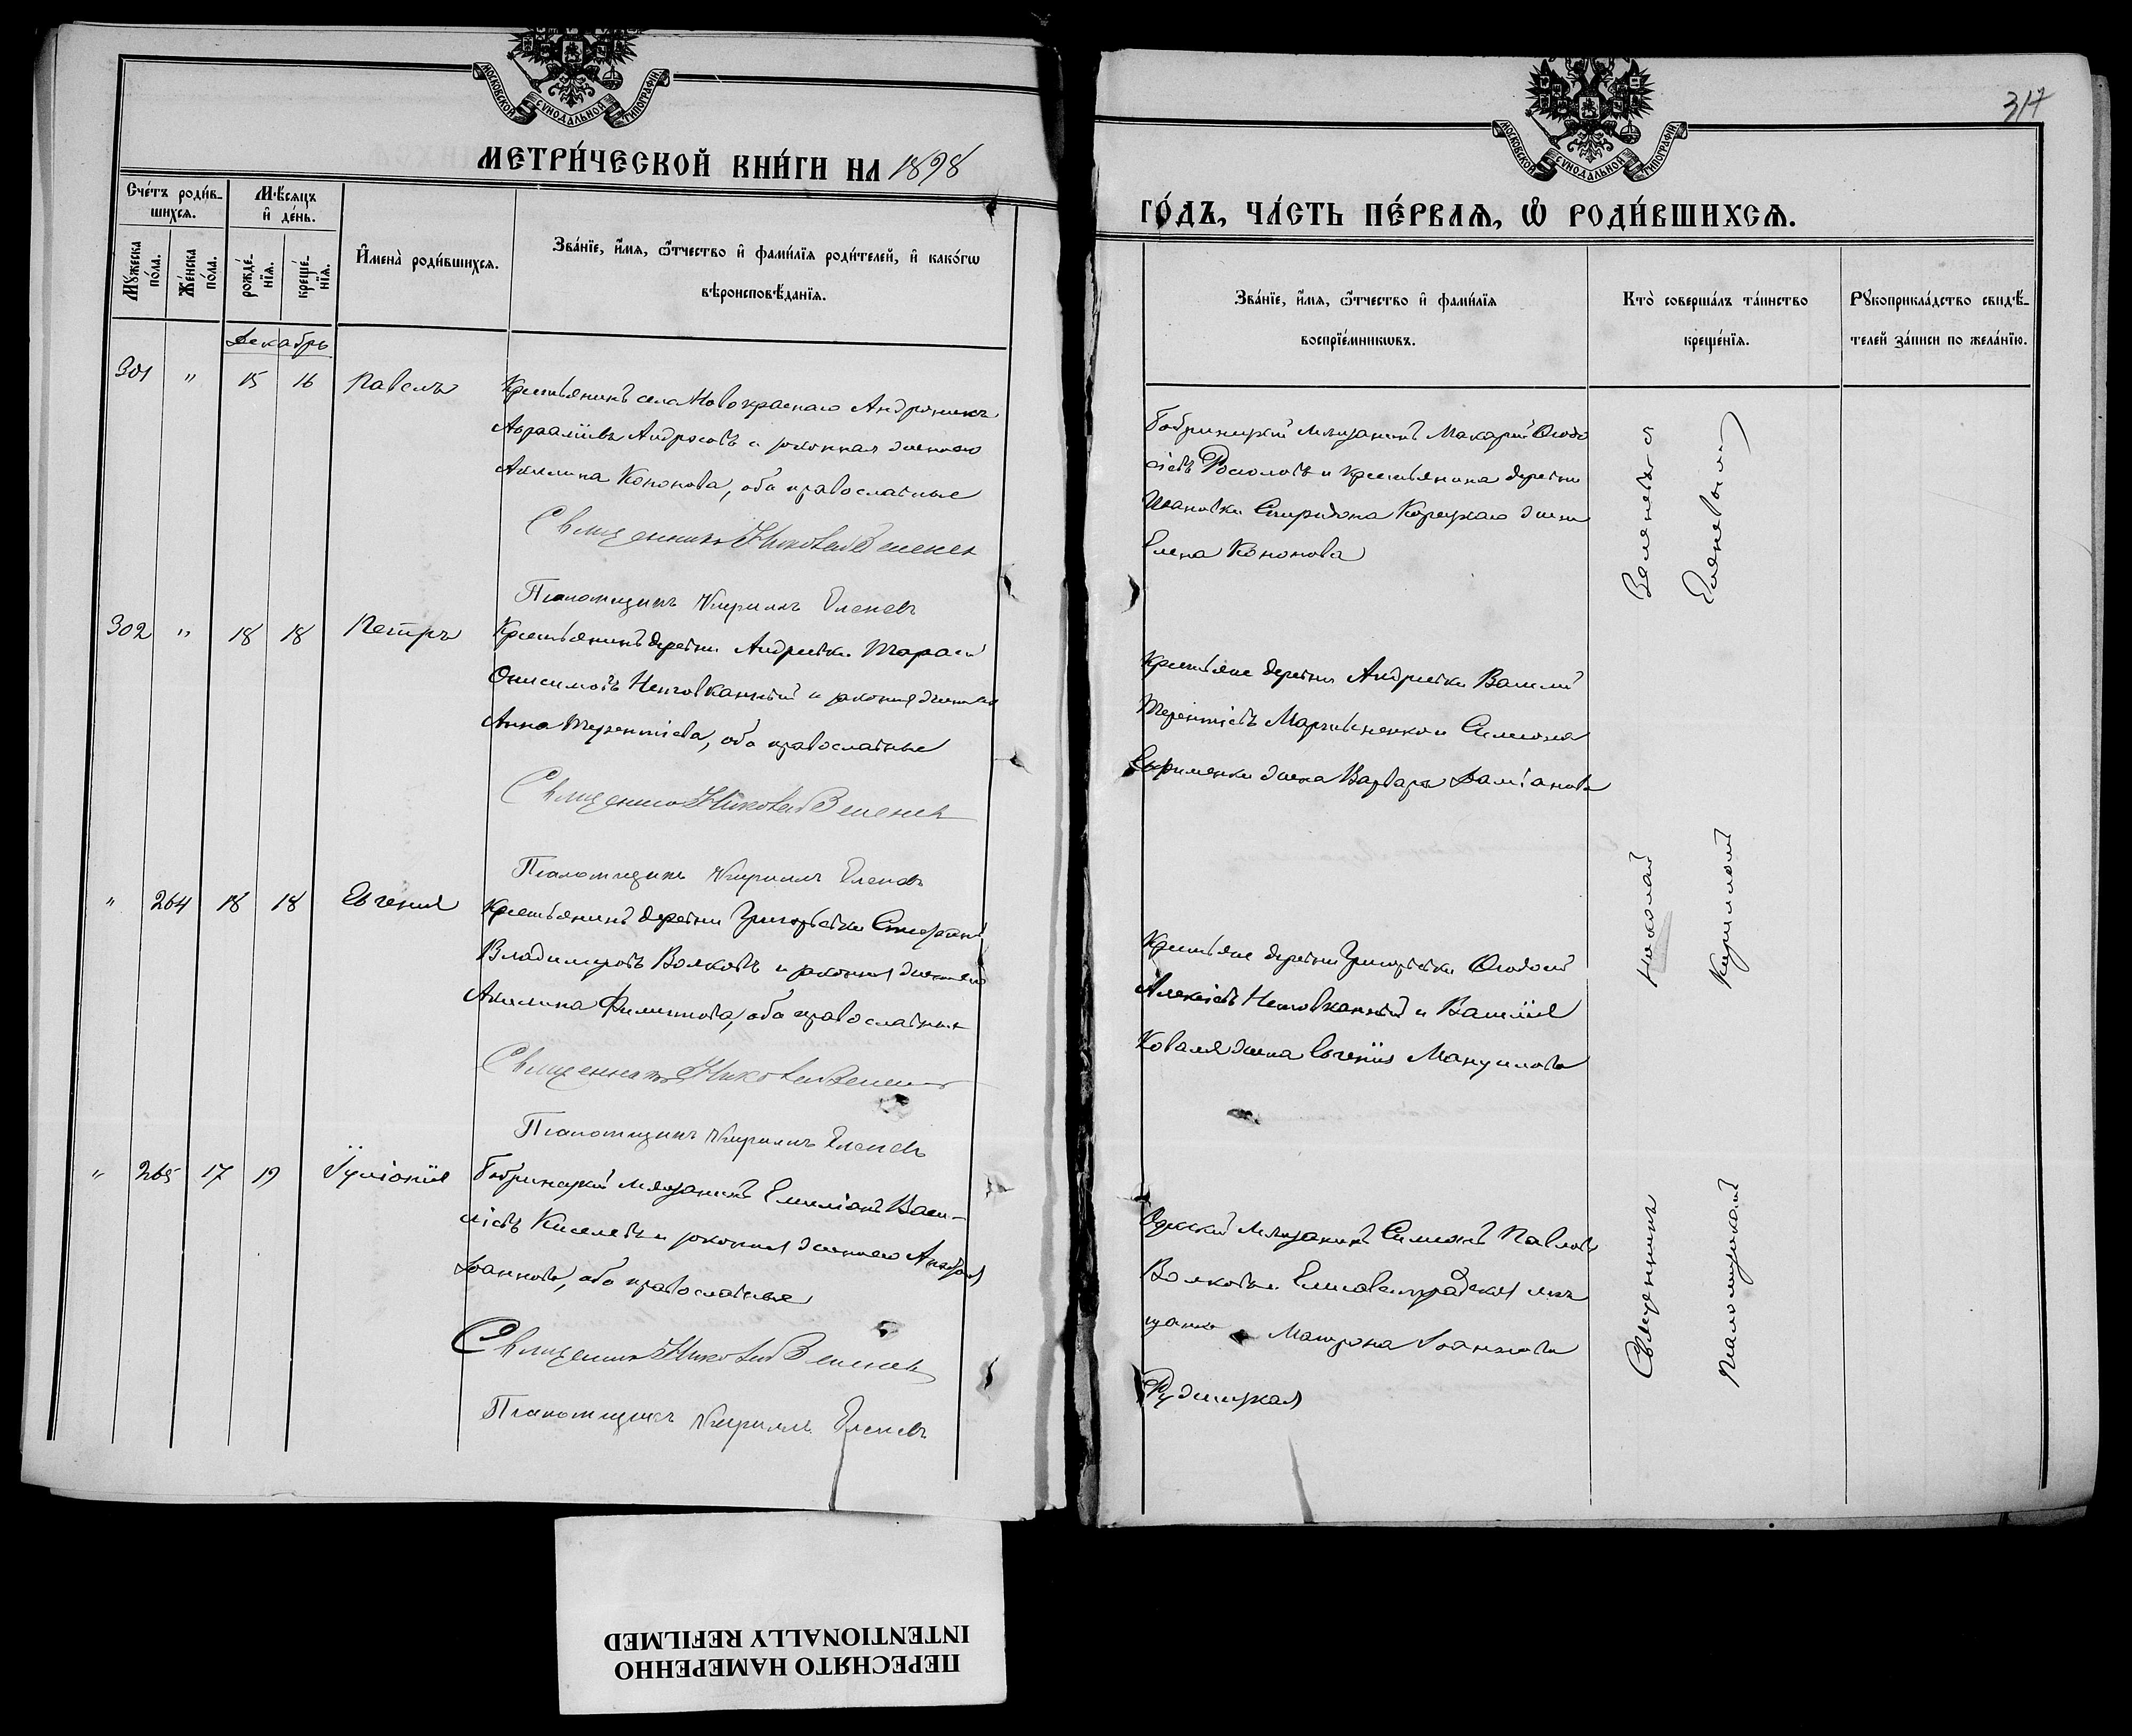 МОСКОВСКОЙ СѴНОДАЛЬНОЙ ТИПОГРАФІИ
МЕТРИ́ЧЕСКОЙ КНИ́ГИ НА 1898
Сче́тъ роди́в-
шихся.
Мѣсяцъ
и҆ де́нь.
Мꙋжеска
по́ла.
Же́нска
по́ла.
рожде́-
нїя.
креще́-
нїя.
И҆мена̀ роди́вшихся.
Зва́нїе, и҆́мя, ѻ҆́тчество и҆ фами́лїя роди́телей, и҆ како́гѡ
вѣроисповѣ́данїя.
Декабрь
301 " 15 16 Павелъ
Крестьянинъ села Новокраснаго Андроникъ
Авраамiевъ Андросовъ и законная жена его
Акилина Кононова, оба православные
Священникъ Николай Зеленев
Псаломщикъ Кириллъ Еленевъ
302 " 18 18 Петръ
Крестьянинъ деревни Андреевки Тарасiй
Онисимовъ и законная жена его
Анна Терентiева, оба православные
Священникъ Николай Зеленев
Псаломщикъ Кириллъ Еленевъ
" 264 18 18 Евгенiя
Крестьянинъ деревни Григорьевки Стефанъ
Владимiровъ Волковъ и законная жена его
Акилина Филиппова, оба православные
Священникъ Николай Зеленев
Псаломщикъ Кириллъ Еленевъ
" 265 17 19 Iулiанiя
Бобринецкiй мѣщанинъ Емилiанъ Васи-
лiевъ Киселевъ и законная жена его
Iоаннова, оба православные
Священникъ Николай Зеленев
Псаломщикъ Кириллъ Еленевъ
317
МОСКОВСКОЙ СѴНОДАЛЬНОЙ ТИПОГРАФІИ
ГО́ДЪ, ЧА́СТЬ ПЕ́РВАЯ, Ѡ҆ РОДИ́ВШИХСЯ.
Зва́нїе, и҆́мя, ѻ҆́тчество и҆ фами́лїя
воспрїе́мникѡвъ.
Кто̀ соверша́лъ та́инство
креще́нїя.
Рꙋкоприкла́дство свидѣ́-
телей за́писи по жела́нїю.
Бобринецкiй мѣщанинъ Макарiй Ѳеодо
сiевъ и крестьянина деревни
Ивановки Спиридона Корецкаго жена
Елена Кононова
Крестьяне деревни Андреевки Василiй
Терентiевъ Мартыненко и Симеона
Ефименки жена Варвара Дамiанова
Крестьяне деревни Григорьевки Ѳеодоръ
Алексiевъ и Василiя
Коваля жена Евгенiя Мануилова
Одесскiй мѣщанинъ Симеонъ Павловъ
Волковъ и Елисаветградская мѣ
щанка Матрона Iоаннова
Рудницкая
Священникъ Николай Зеленевъ и
Псаломщикъ Кириллъ Еленевъ
ПЕРЕСНЯТО НАМЕРЕННО
INTENTIONALLY REFILMED